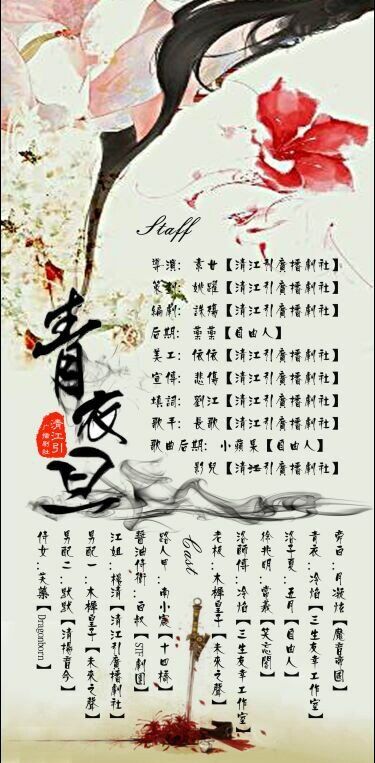 青衣旦
清江引
广播剧社
Staff
導演: 素廿【清江引廣播劇社】
策劃: 姚躍【清江引廣播劇社】
編劇: 【清江引廣播劇社】
后期: 【自由人】
美工: 【清江引廣播劇社】
宣傳: 悲傷【清江引廣播劇社】
填詞: 劉江【清江引廣播劇社】
歌手: 長歌【清江引廣播劇社】
歌曲后期: 小蘋果【自由人】
影兒【清江引廣播劇社】
Cast
旁白:月凝炫【魔音帝國】
青衣:冷焰【三生友幸工作室】
洛子夏:五月【自由人】
徐兆明:【笑忘閣】
洛師傅:冷焰【三生友幸工作室】
老板:木樨皇子【未來之聲】
路人甲:南小寞【十四橋】
醬油侍衛:白叔【STF劇團】
江姐:楊清【清江引廣播劇社】
男配一:木樨皇子【未來之聲】
男配二:默默【清揚音今】
侍女:芙蕖【Dragonborn】